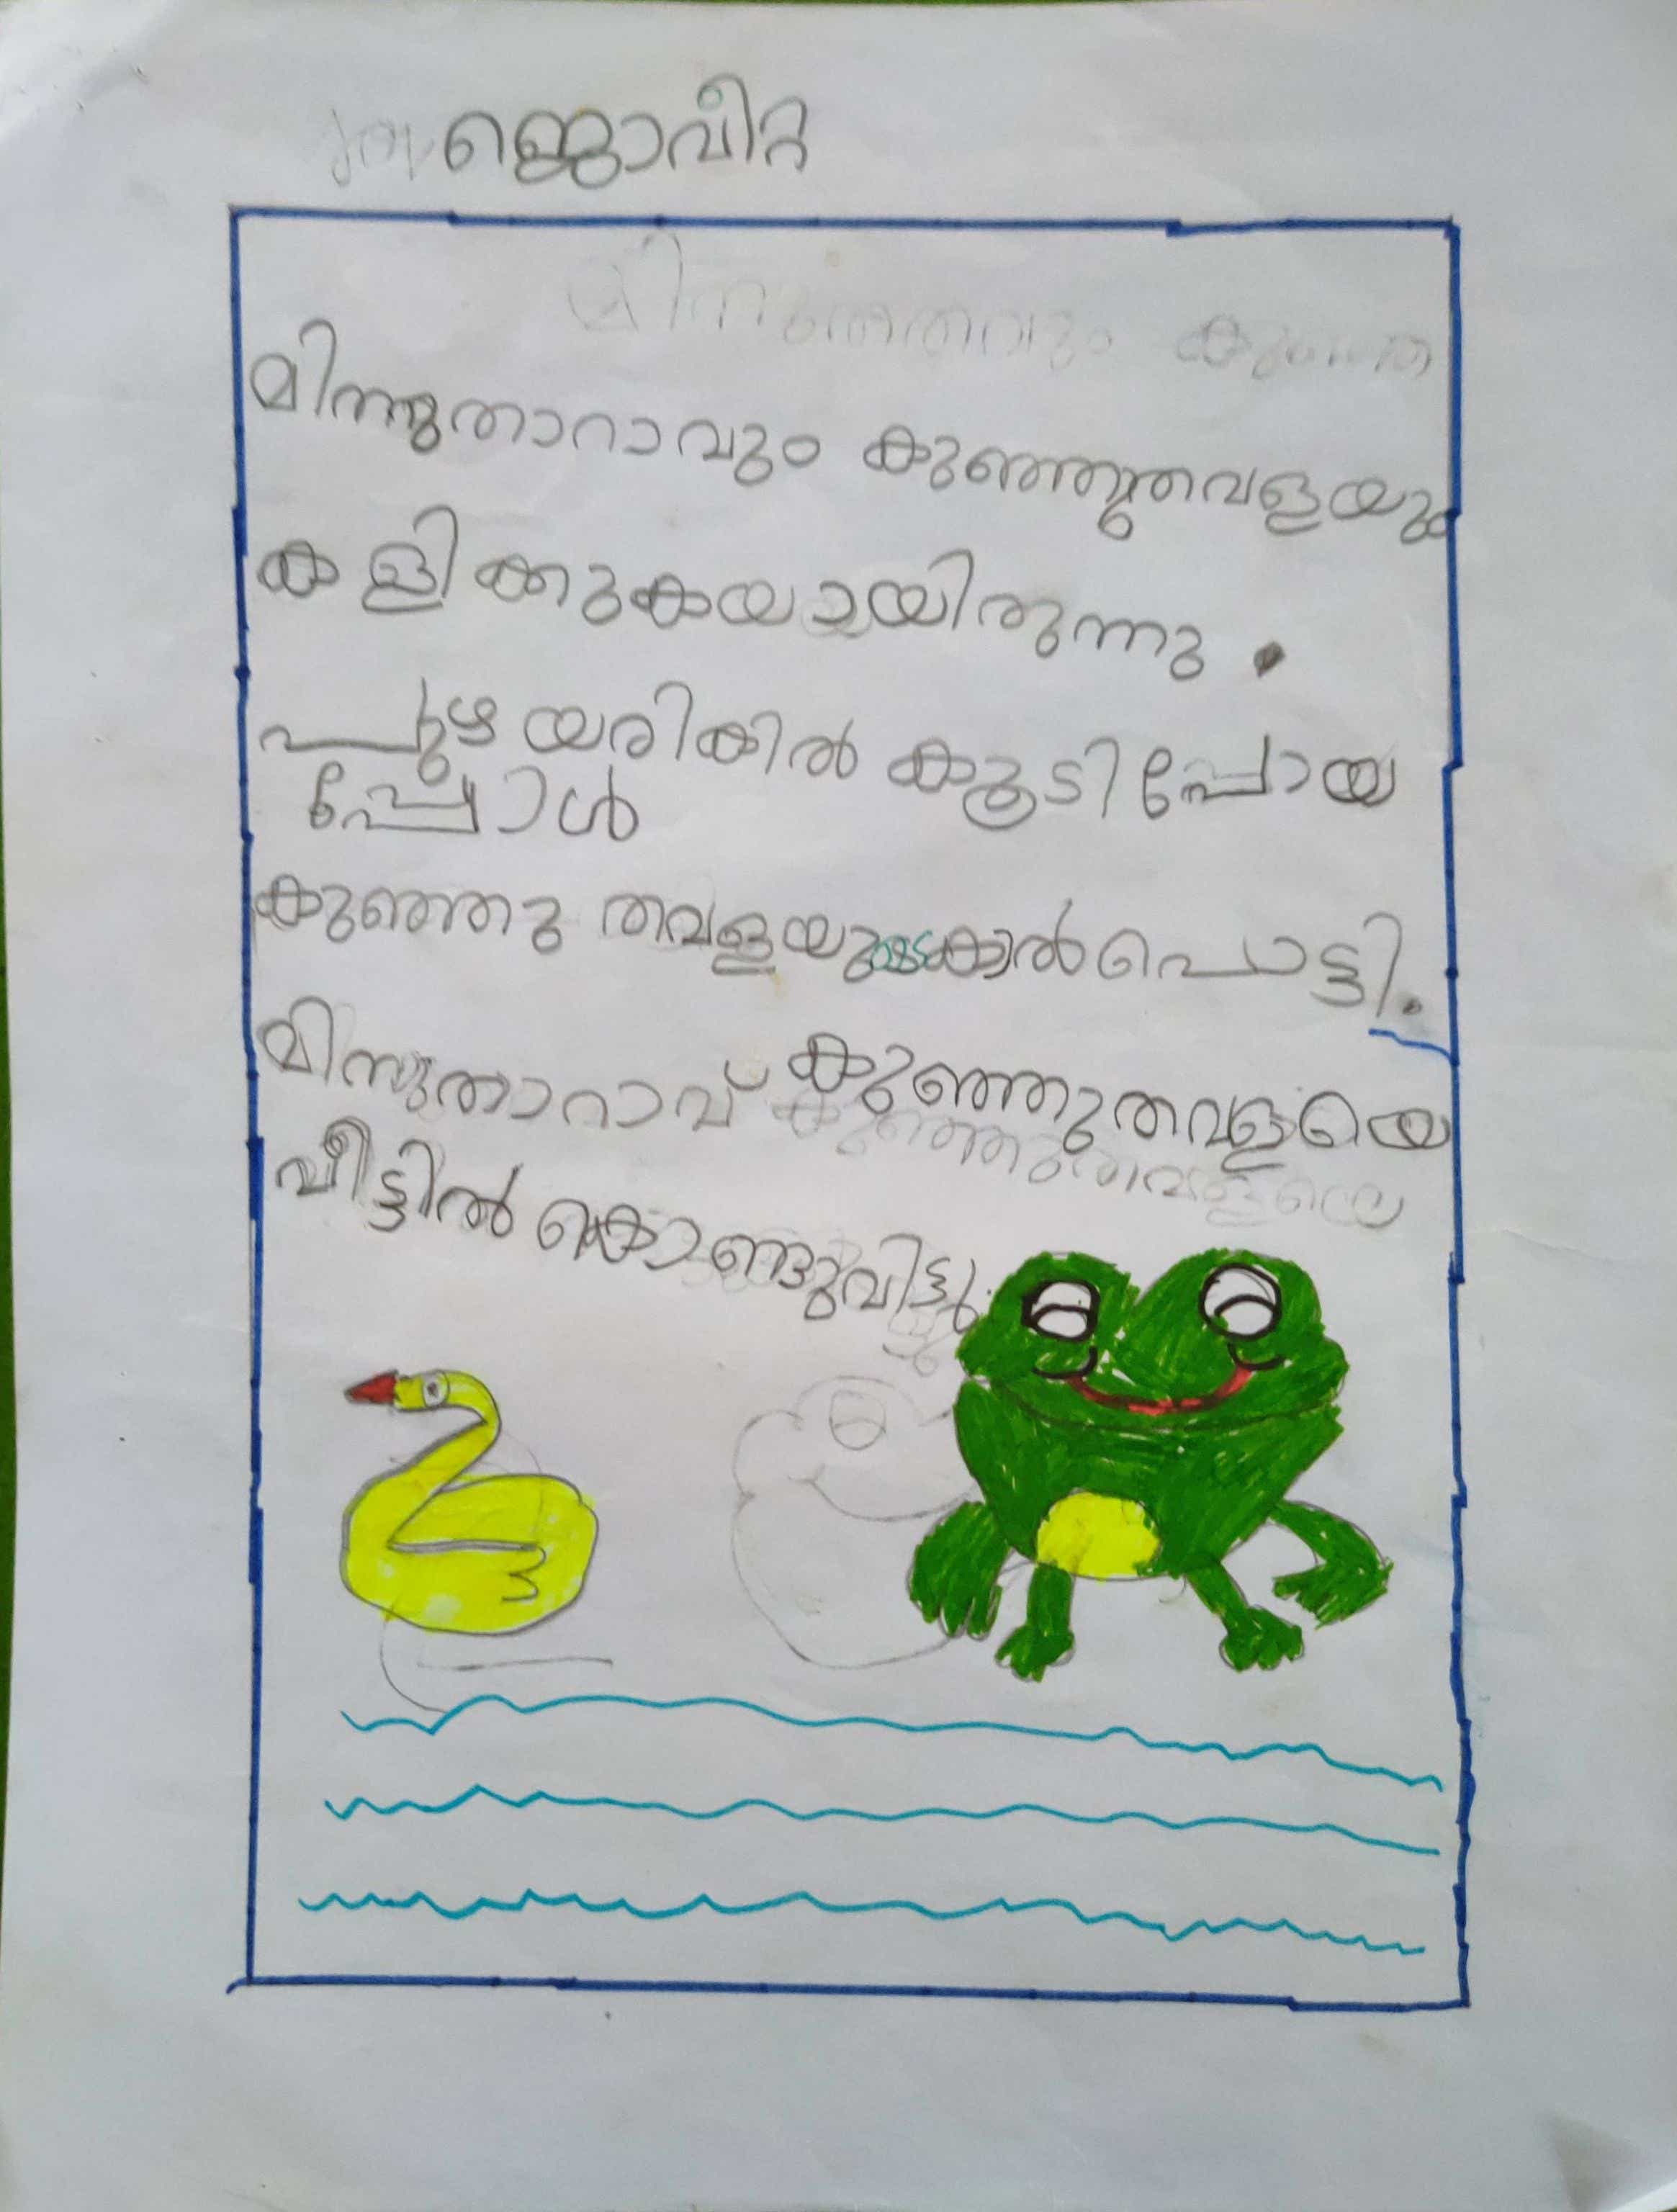 ജൊവീറ്റ
മിന്നുതാറാവും കുഞ്ഞുതവളയും
കളിക്കുകയായിരുന്നു.
പുഴയരികിൽ കൂടിപ്പോയ
പ്പോൾ
കുഞ്ഞു തവളയുടെകാൽപൊട്ടി.
മിന്നുതാറാവ് കുഞ്ഞുതവളയെ
വീട്ടിൽ കൊണ്ടുവിട്ടു.